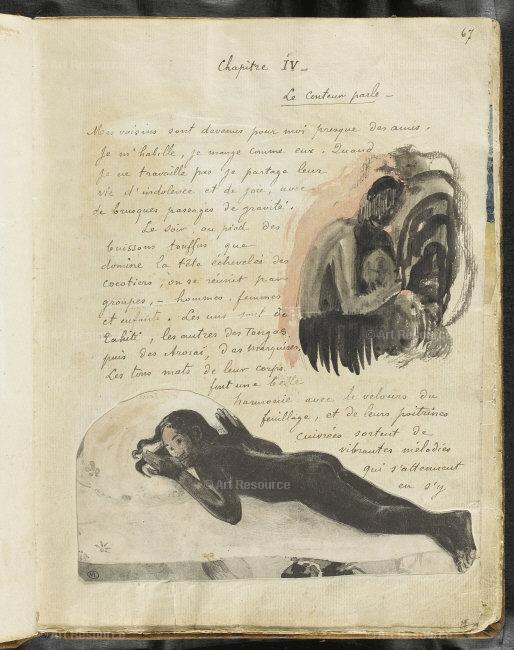 67
Chapitre IV _
Le Conteur parle _
Mes voisins sont devenus pour moi presque des amis.
Je m'habille, je mange comme eux. Quand
je ne travaille pas je partage leur
vie d'indolence et de joie, avec
de brusques passages de gravité.
Le soir, au pied des
buissons touffus que
domine la tête échevelée des
cocotiers, on se réunit par
groupes, _ hommes, femmes
et enfants. Les uns sont de
Tahiti, les autres des Tongas,
puis des Arorai, des Marquises.
Les tons mats de leur corps
font une belle
harmonie avec le velours du
feuillage, et de leurs poitrines
cuivrées sortent de
vibrantes mélodies
qui s'atténuent
en s'y
© Art Resource
© Art Resource
Art Resource